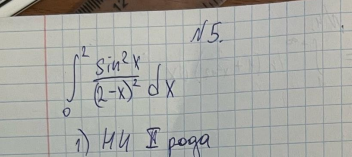 N5.
∫₀² sin²x / (2-x)² dx
1) НИ II рода